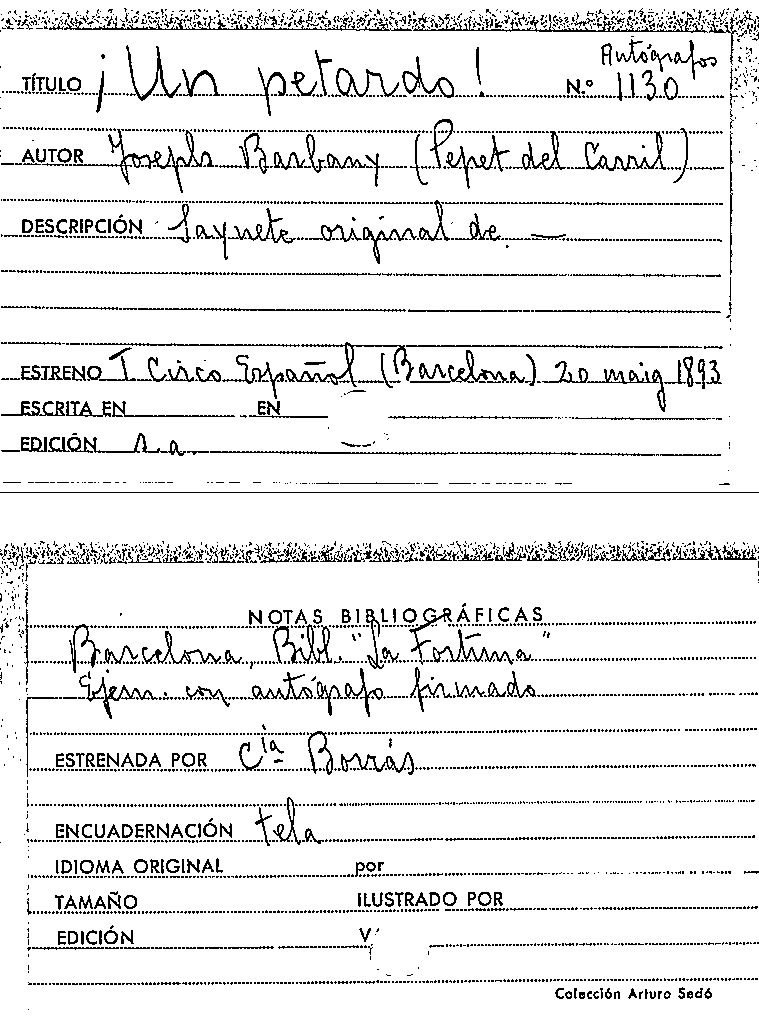 Autógrafos
TÍTULO ¡Un petardo! N.º 1130
AUTOR Joseph Barbany (Pepet del Carril)
DESCRIPCIÓN Saynete original de —
ESTRENO T. Circo Español (Barcelona) 20 maig 1893
ESCRITA EN EN
EDICIÓN s.a.
NOTAS BIBLIOGRÁFICAS
Barcelona, Bibl. "La Fortuna"
Ejem. con autógrafo firmado
ESTRENADA POR Cía Borrás
ENCUADERNACIÓN tela
IDIOMA ORIGINAL por
TAMAÑO ILUSTRADO POR
EDICIÓN V
Colección Arturo Sedó